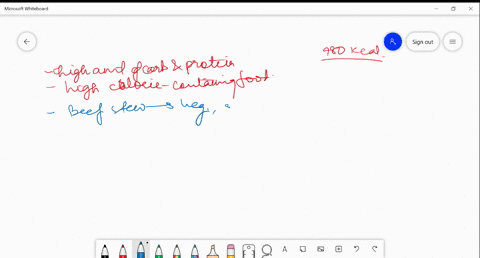 Microsoft Whiteboard
Sign out
980 Kcal.
- high and of carb & protein
- high calorie-containing food.
- Beef stew → veg,